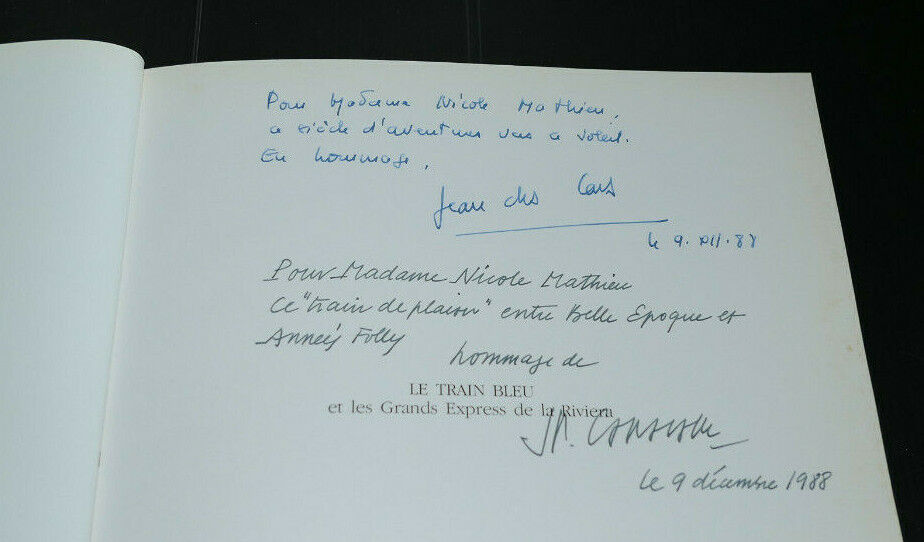 Pour Madame Nicole Mathieu,
ce siècle d'aventures vers le soleil.
En hommage,
Jean des Cars
le 9.XII.88
Pour Madame Nicole Mathieu
ce "train de plaisir" entre Belle Epoque et
Années Folles
hommage de
LE TRAIN BLEU
et les Grands Express de la Riviera
le 9 décembre 1988